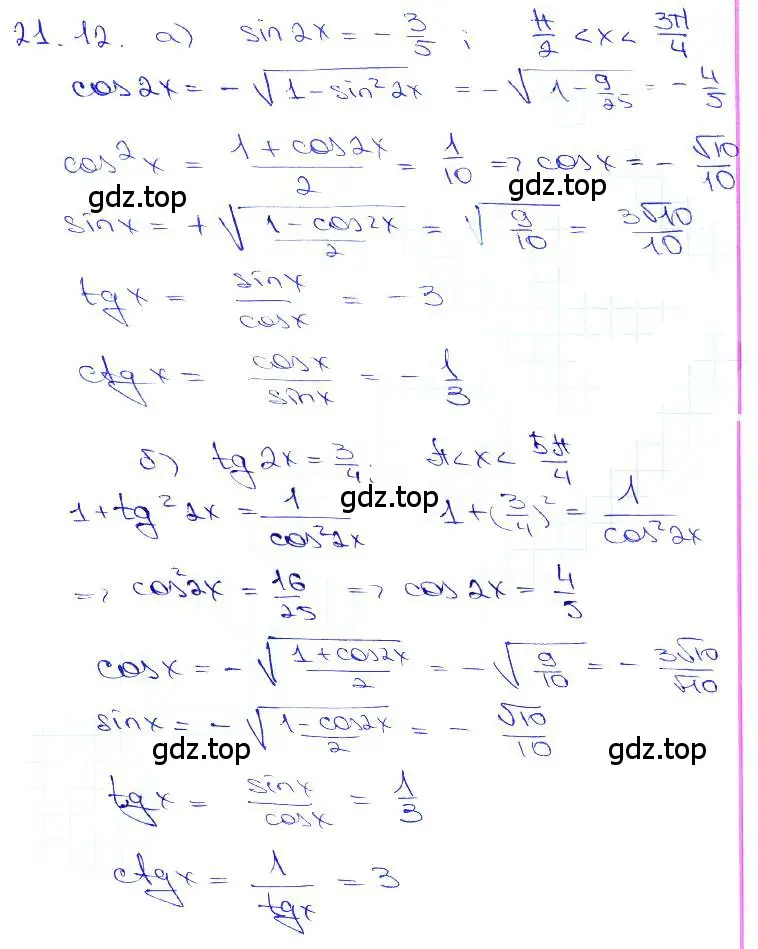 21.12. а) sin2x = - 3/5 ; π/2 < x < 3π/4
cos2x = -√(1-sin²2x) = -√(1 - 9/25) = - 4/5
cos²x = (1+cos2x)/2 = 1/10 => cosx = - √10/10
gdz.top gdz.top
sinx = +√((1-cos2x)/2) = √(9/10) = 3√10/10
tgx = sinx/cosx = -3
ctgx = cosx/sinx = - 1/3
б) tg2x = 3/4; π < x < 5π/4
gdz.top
1+tg²2x = 1/cos²2x 1+(3/4)² = 1/cos²2x
=> cos²2x = 16/25 => cos2x = 4/5
cosx = -√((1+cos2x)/2) = -√(9/10) = - 3√10/√10
sinx = -√((1-cos2x)/2) = - √10/10
gdz.top gdz.top
tgx = sinx/cosx = 1/3
ctgx = 1/tgx = 3